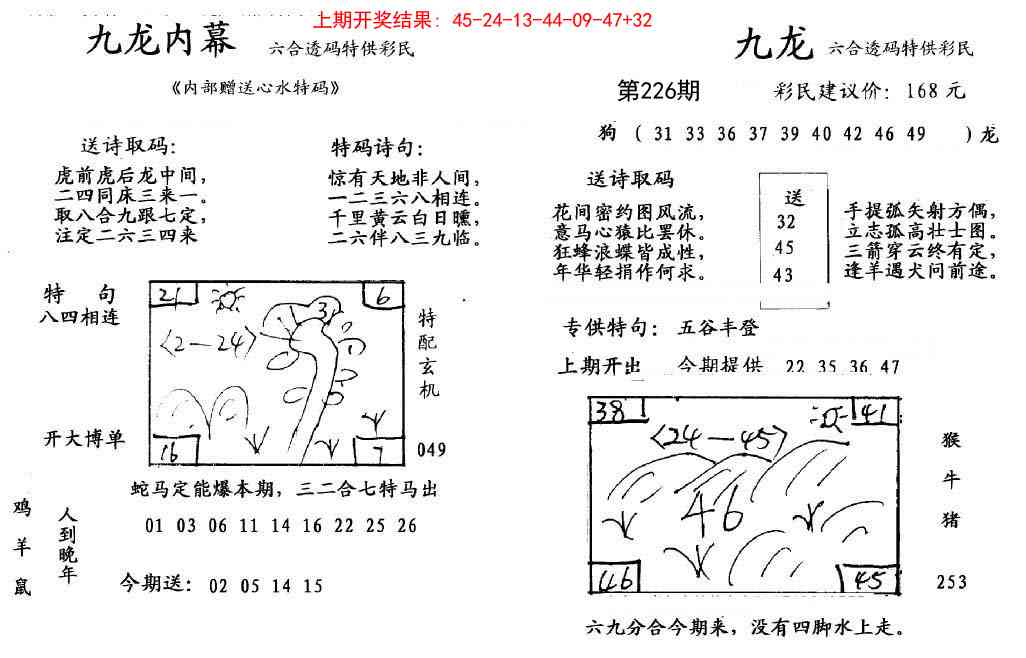 上期开奖结果：45-24-13-44-09-47+32
九龙内幕 六合透码特供彩民
《内部赠送心水特码》
送诗取码：
虎前虎后龙中间，
二四同床三来一。
取八合九跟七定，
注定二六三四来
特码诗句：
惊有天地非人间，
一二三六八相连。
千里黄云白日曛，
二六伴八三九临。
特 句
八四相连
开大博单
21
6
3
<2—24>
16
7
特配玄机
049
蛇马定能爆本期，三二合七特马出
鸡羊鼠
人到晚年
01 03 06 11 14 16 22 25 26
今期送：02 05 14 15
九龙 六合透码特供彩民
第226期 彩民建议价：168元
狗（31 33 36 37 39 40 42 46 49 ）龙
送诗取码
花间密约图风流，
意马心猿比罢休。
狂蜂浪蝶皆成性，
年华轻捐作何求。
送
32
45
43
手提弧矢射方偶，
立志孤高壮士图。
三箭穿云终有定，
逢羊遇犬问前途。
专供特句：五谷丰登
上期开出 今期提供 22 35 36 47
38
41
<24—45>
46
46
45
猴
牛
猪
253
六九分合今期来，没有四脚水上走。